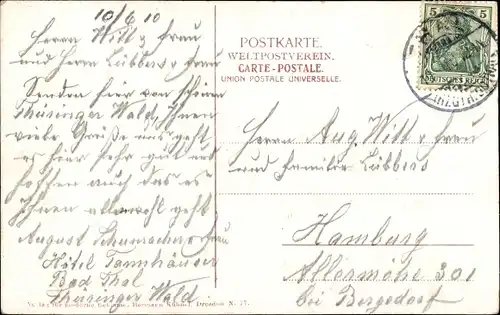 10/6 10
Herrn Witt & Frau
und Herrn Lübbers & Frau
Senden hier von schönen
Thüringer Wald, Ihnen
viele Grüße uns geht
es hier sehr gut und
hoffen auch das es
Ihnen allen wohl geht
August Schumacher & Frau
Hôtel Tannhäuser
Bad Thal
Thüringer Wald.
POSTKARTE.
WELTPOSTVEREIN.
CARTE-POSTALE.
UNION POSTALE UNIVERSELLE.
5 5
DEUTSCHES REICH
Herrn Aug. Witt & Frau.
und Familie Lübbers
Hamburg
Allermöhe 301
bei Bergedorf
Dresden N. 17.